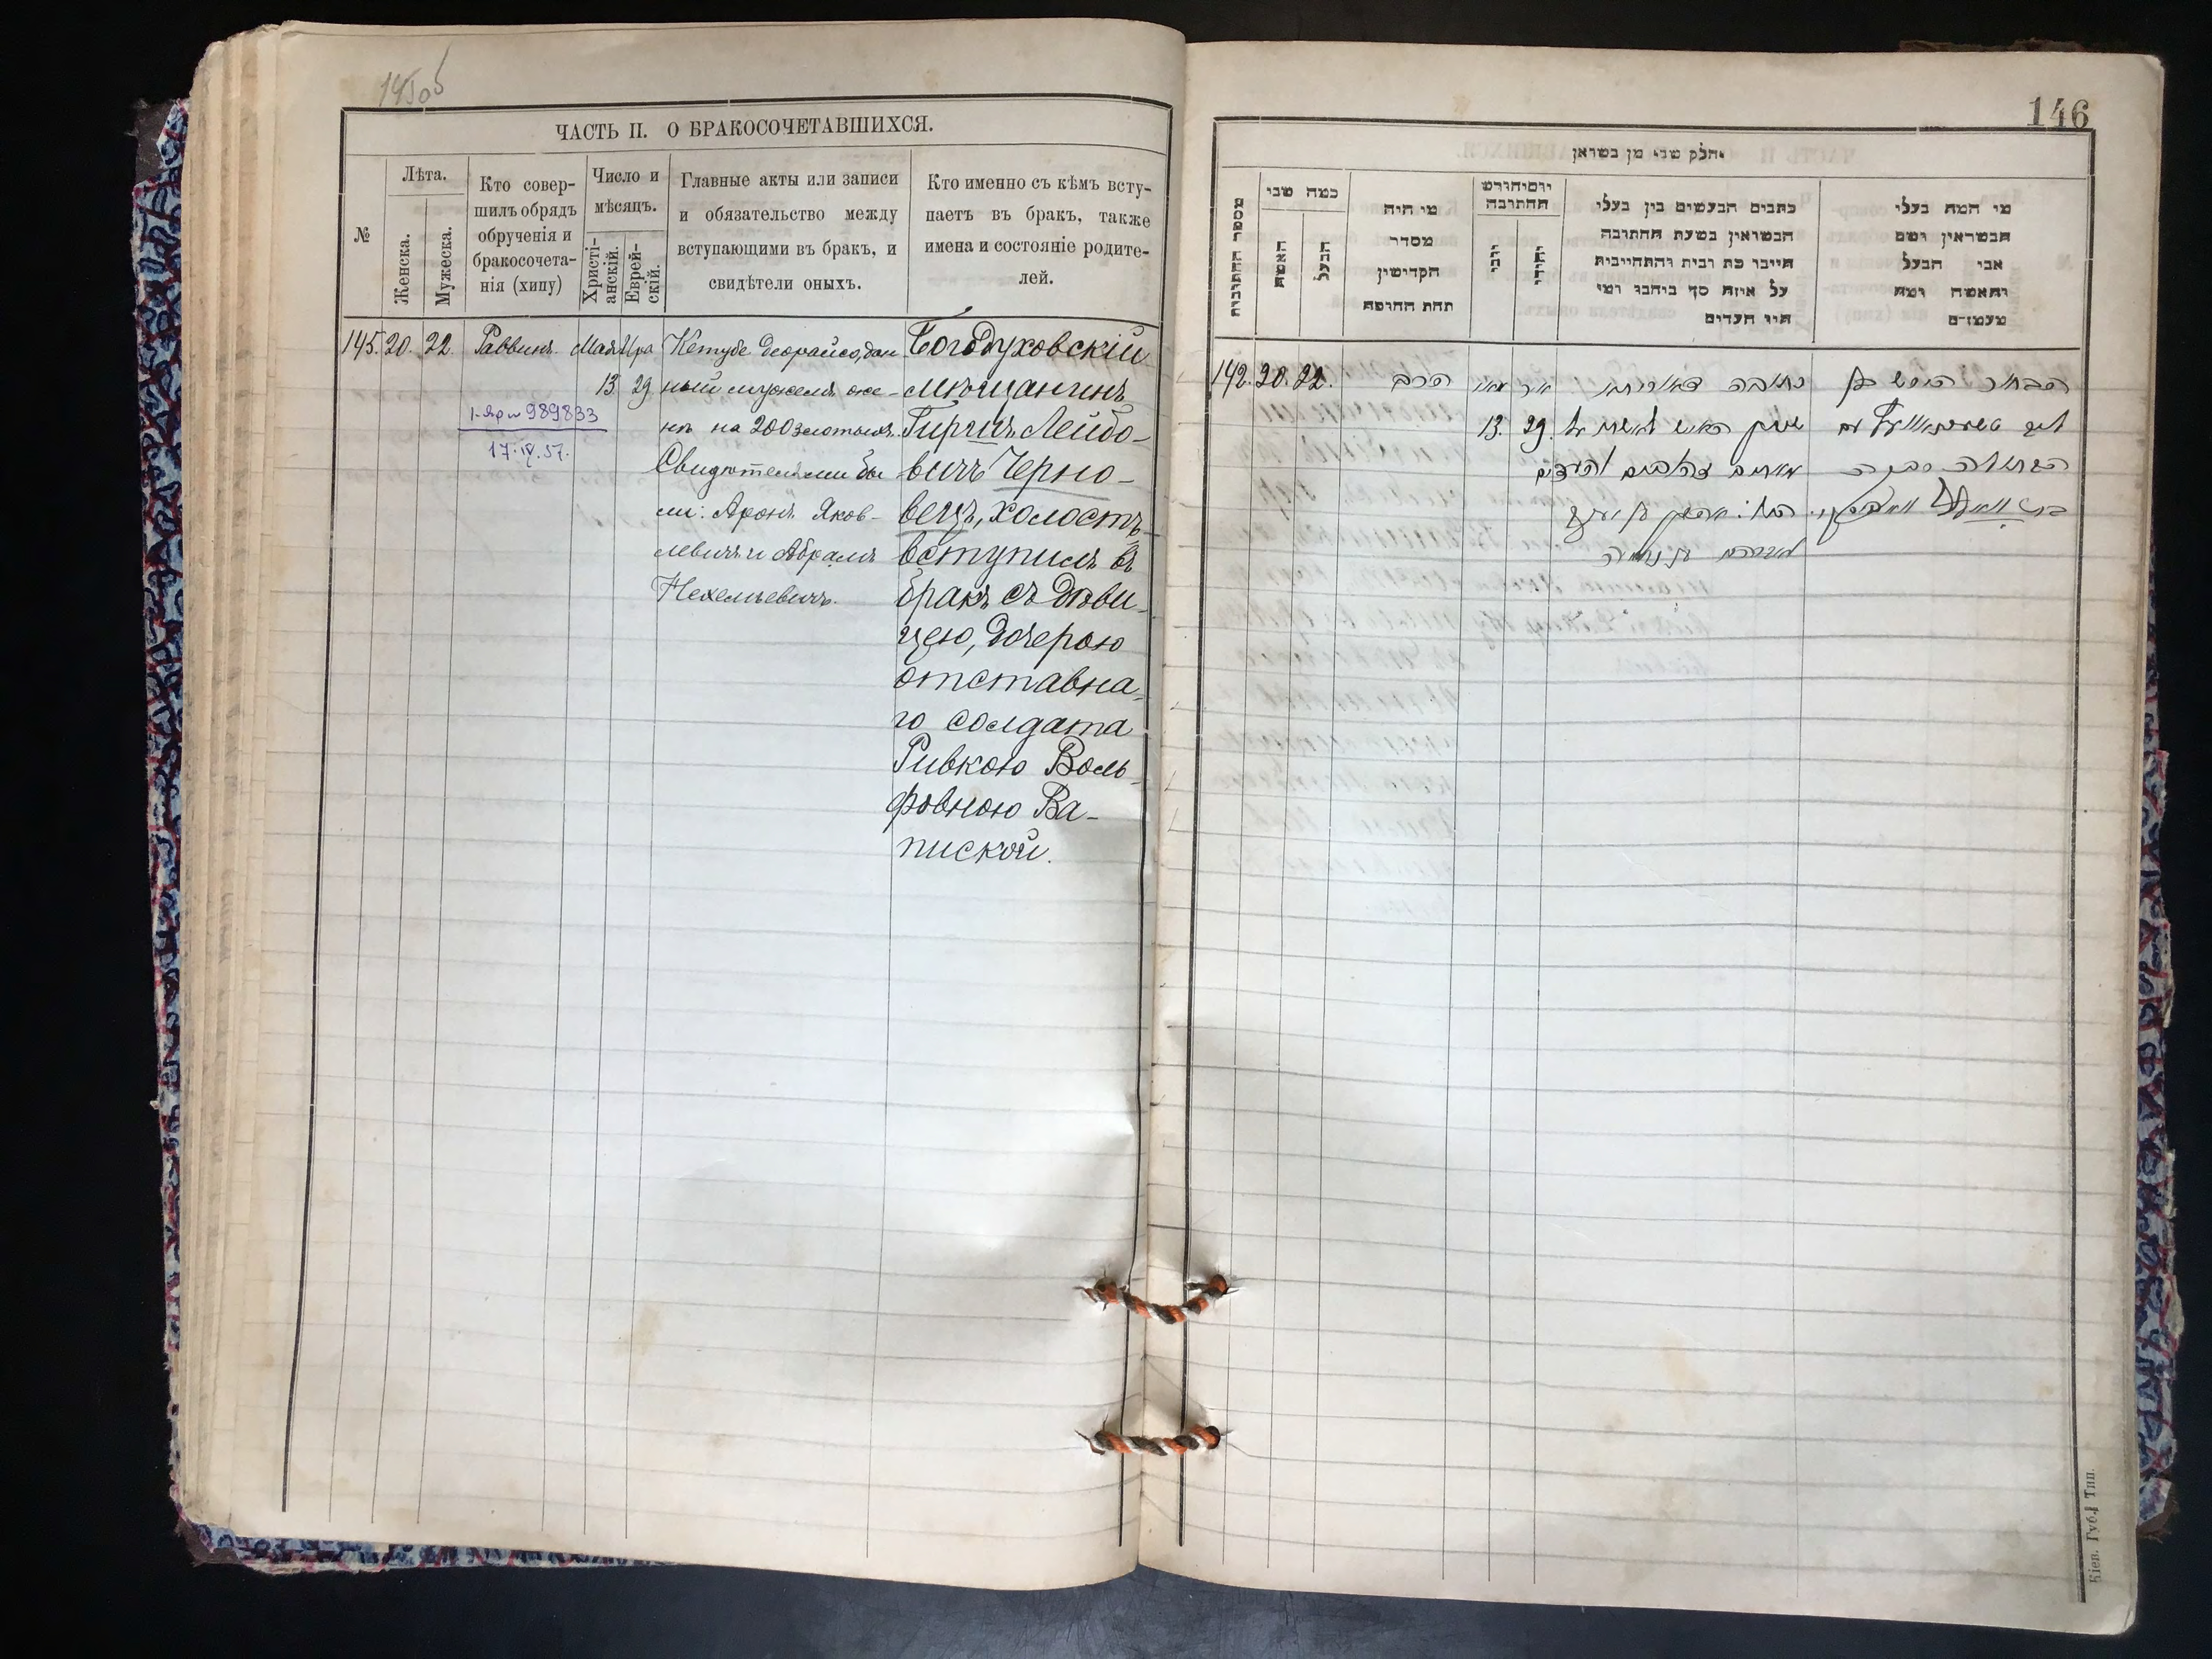 145об
ЧАСТЬ II. О БРАКОСОЧЕТАВШИХСЯ.
№
Лѣта.
Женска.
Мужеска.
Кто совер-
шилъ обрядъ
обрученія и
бракосочета-
нія (хипу)
Число и
мѣсяцъ.
Христі-
анскій.
Еврей-
скій.
Главные акты или записи
и обязательство между
вступающими въ бракъ, и
свидѣтели оныхъ.
Кто именно съ кѣмъ всту-
паетъ въ бракъ, также
имена и состояніе родите-
лей.
145. 20. 22. Раввинъ. Мая Ира
13 29
Кетубе деорайсо, дан
ный мужемъ же-
нѣ на 200 золотыхъ.
Свидѣтелями бы
ли: Аронъ Яков-
левичъ и Абрамъ
Нехемьевичъ.
989833
17.IV.57.
Богодуховскій
мѣщанинъ
Гиршъ Лейбо-
вичъ Черно-
вецъ, холостъ
вступилъ въ
бракъ съ дѣви-
цею, дочерью
отставна-
го солдата
Ривкою Воль-
фовною Ва-
пиской.
146
חלק שני מן נשואין
מספר החתונות
כמה שני
האשה
הבעל
מי היה
מסדר
הקדישין
תחת החופה
יום וחודש
החתונה
יוני
יהודי
כתבים הנעשים בין בעלי
הנשואין בשעת החתונה
חייבו כת רבית והתחייבות
על איזה סך ביהבו ומי
היו העדים
מי המה בעלי
הנשואין ושם
אבי הבעל
והאשה ומה
מעמדם
142. 20. 22. הרב
13. 29.
כתובה דאורייתא
הבחור הירש בן
הבתולה רבקה
Кіев. Губ. Тип.